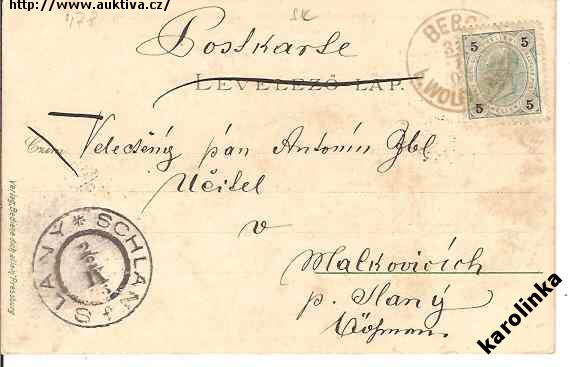 http://www.auktiva.cz/
478
SK
Postkarte
LEVELEZŐ LAP.
5 5
5 5
Velectěný pán Antonín Zbl
Učitel
v
Malkovicích
p. Slaný
Böhmen.
SLANÝ * SCHLAN *
karolinka